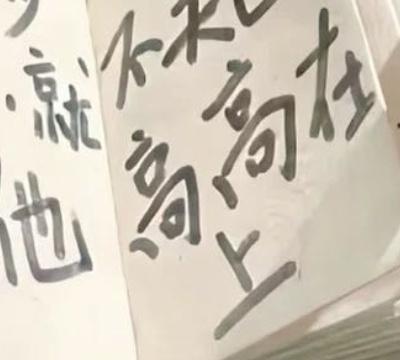 就
他
不
高高在
上